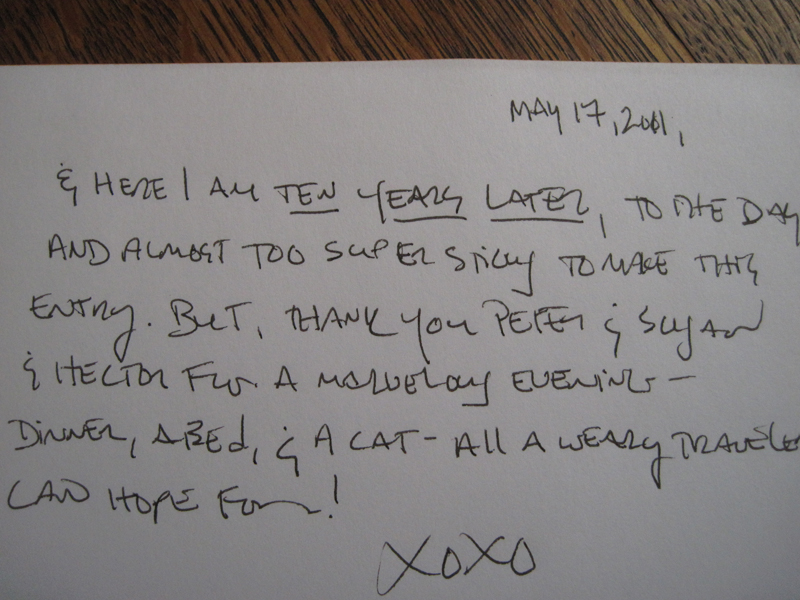 MAY 17, 2001,
& HERE I AM TEN YEARS LATER, TO THE DAY
AND ALMOST TOO SUPERSTICIOUS TO MAKE THIS
ENTRY. BUT, THANK YOU PETER & SUSAN
& HECTOR FOR A MARVELOUS EVENING—
DINNER, A BED, & A CAT - ALL A WEARY TRAVELER
CAN HOPE FOR!
XOXO